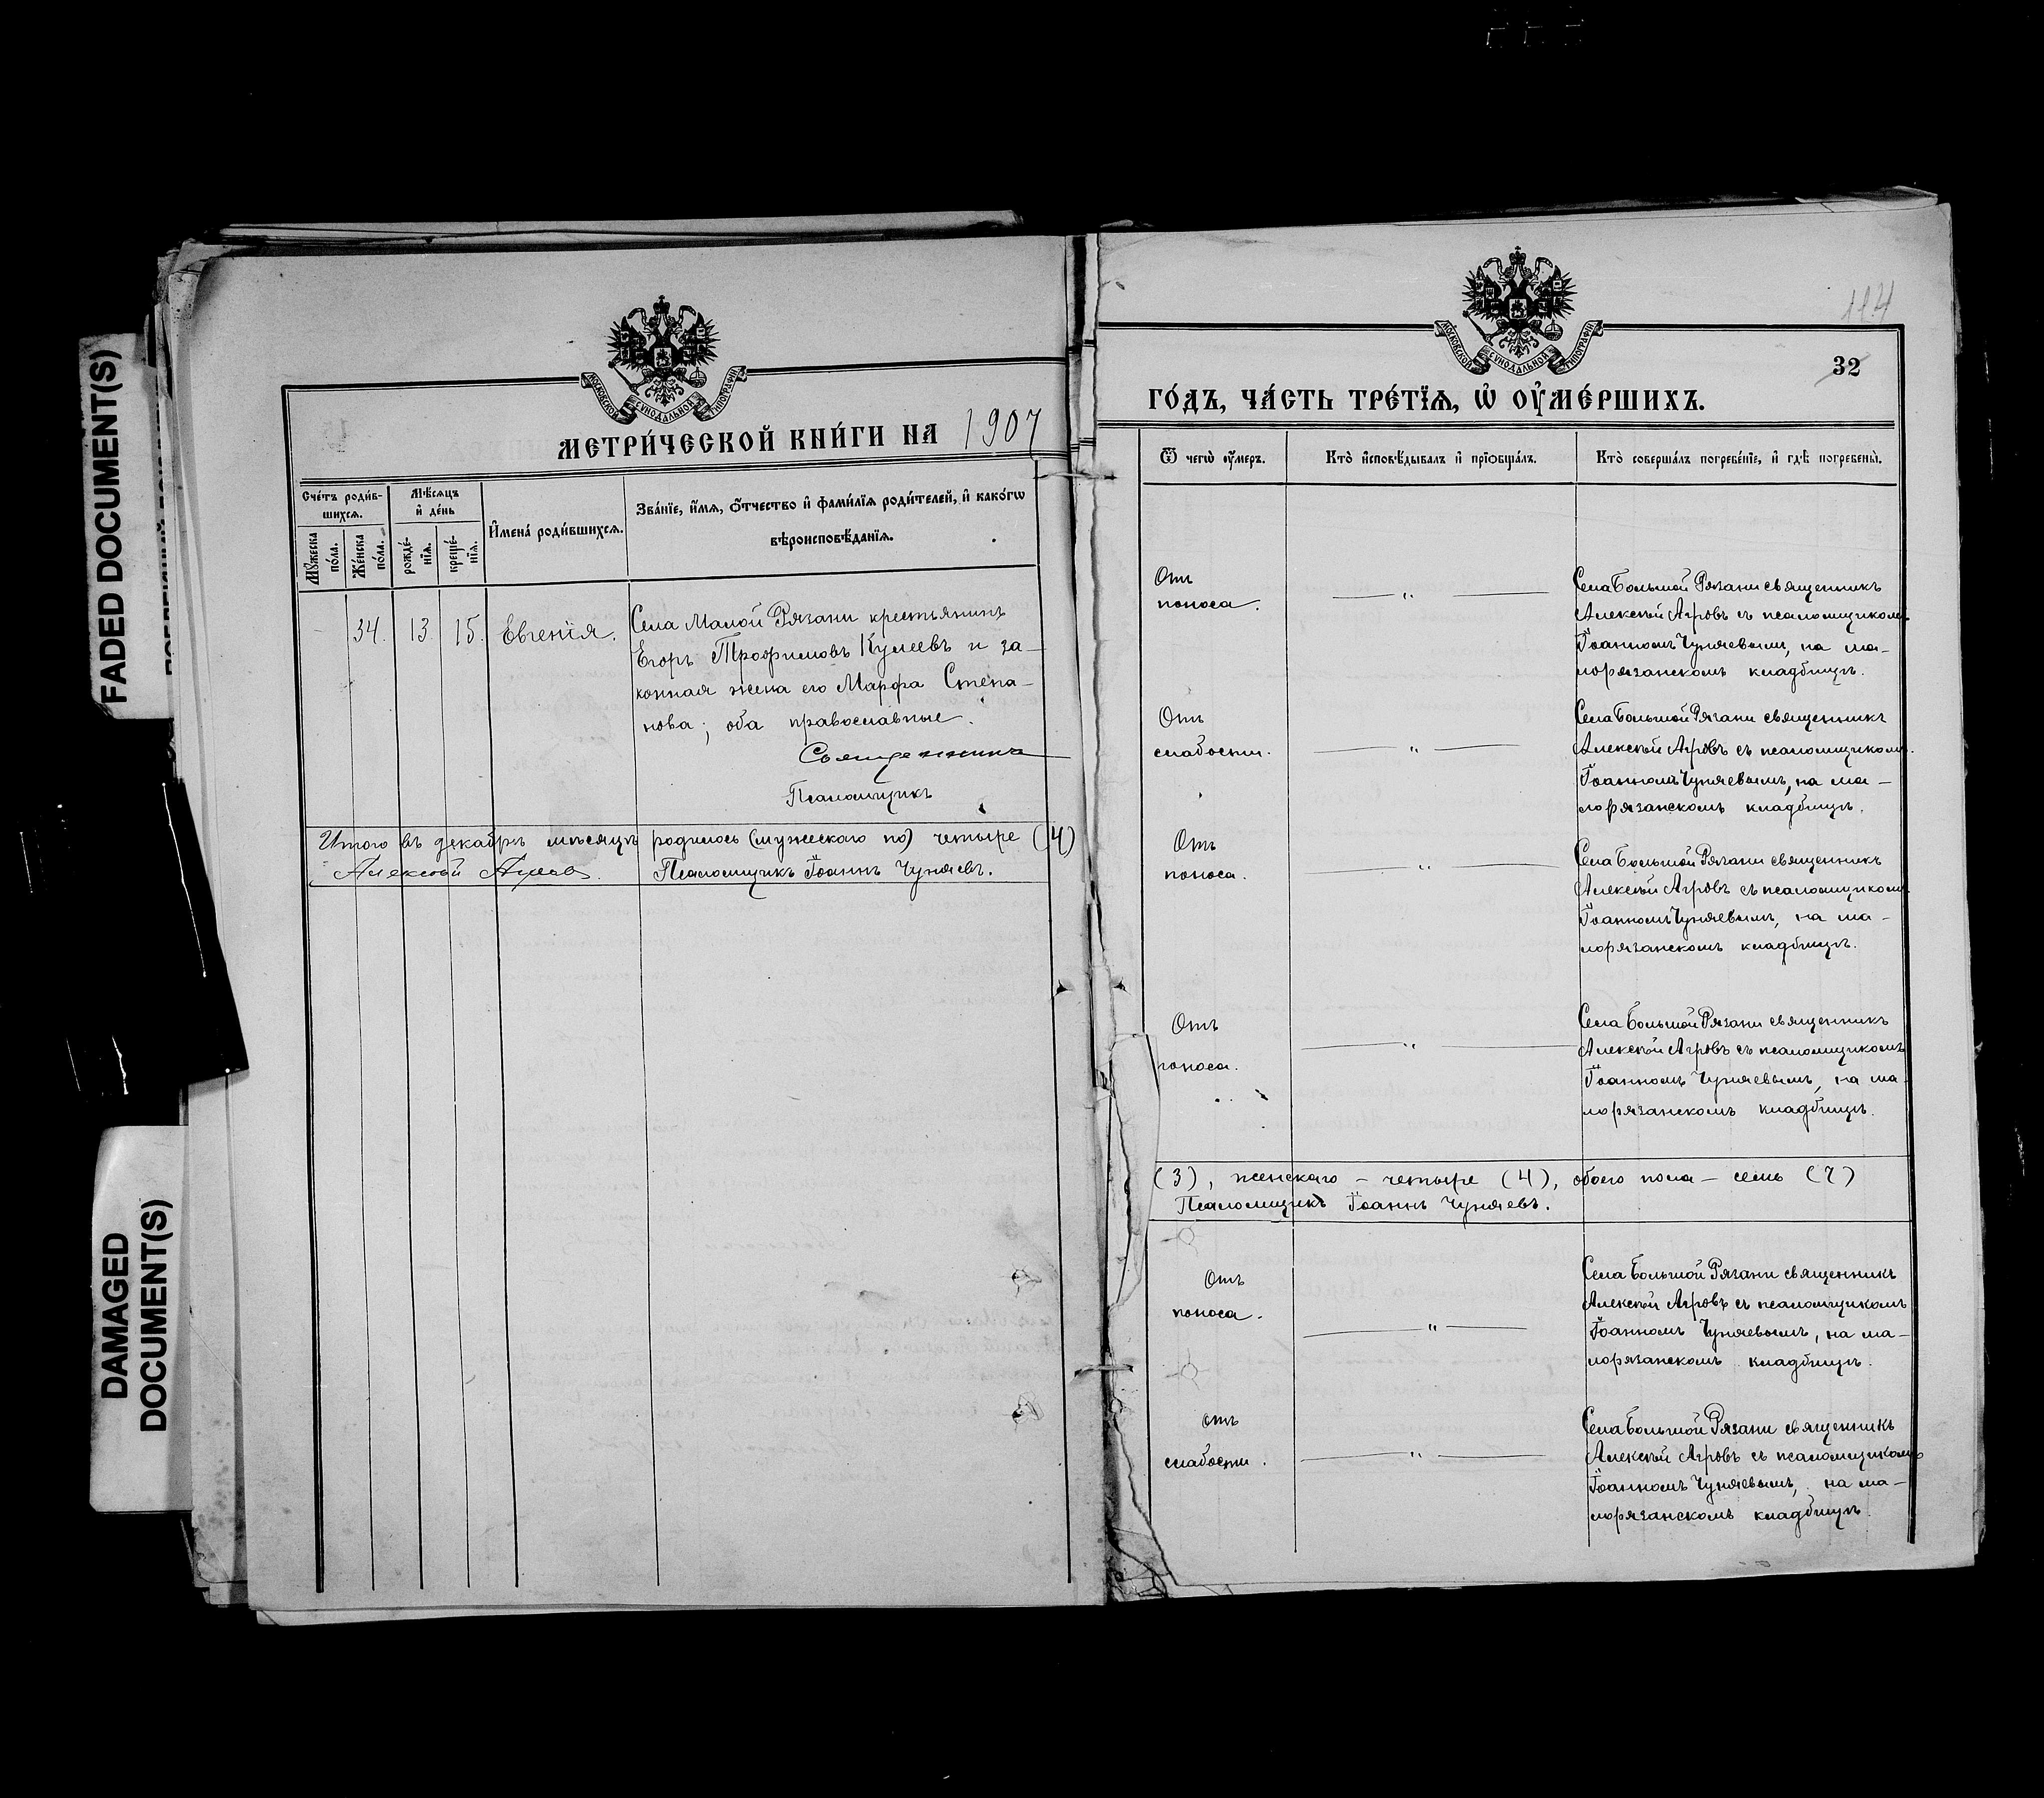 FADED DOCUMENT(S)
DAMAGED
DOCUMENT(S)
МОСКОВСКОЙ СУНОДАЛЬНОЙ ТИПОГРАФІИ
МЕТРИ́ЧЕСКОЙ КНИ́ГИ НА 1907
Сче́тъ роди́в-
шихсѧ.
Мѣ́сѧцъ
и҆ де́нь
Мꙋ́жеска
по́ла.
Же́нска
по́ла.
рожде́-
нїѧ.
креще́-
нїѧ.
И҆мена̀ роди́вшихсѧ.
Зва́нїе, и҆́мѧ, ѻ҆́тчество и҆ фами́лїѧ роди́телей, и҆ како́гѡ
вѣроисповѣ́данїѧ.
- 34. 13. 15. Евгенія.
Села Малой Рязани крестьянинъ
Егоръ Трофимовъ Кулеевъ и за-
конная жена его Марфа Степа-
нова; оба православные.
Священникъ
Псаломщикъ
Итого въ декабрѣ мѣсяцѣ родилось (мужескаго по) четыре (4)
Алексѣй Агровъ. Псаломщикъ Іоаннъ Чуняевъ.
МОСКОВСКОЙ СУНОДАЛЬНОЙ ТИПОГРАФІИ
114
32
ГО́ДЪ, ЧА́СТЬ ТРЕ́ТЇѦ, Ѡ҆ ОУ҆МЕ́РШИХЪ.
Ѿ чегѡ̀ оу҆́меръ.
Кто̀ и҆сповѣ́дывалъ и҆ прїѻбща́лъ.
Кто̀ соверша́лъ погребе́нїе, и҆ гдѣ̀ погребены̀.
Отъ
поноса.
— „ —
Села Большой Рязани священникъ
Алексѣй Агровъ съ псаломщикомъ
Іоанномъ Чуняевымъ, на ма-
лорязанскомъ кладбищѣ.
Отъ
слабости.
— „ —
Села Большой Рязани священникъ
Алексѣй Агровъ съ псаломщикомъ
Іоанномъ Чуняевымъ, на ма-
лорязанскомъ кладбищѣ.
Отъ
поноса.
— „ —
Села Большой Рязани священникъ
Алексѣй Агровъ съ псаломщикомъ
Іоанномъ Чуняевымъ, на ма-
лорязанскомъ кладбищѣ.
Отъ
поноса.
— „ —
Села Большой Рязани священникъ
Алексѣй Агровъ съ псаломщикомъ
Іоанномъ Чуняевымъ, на ма-
лорязанскомъ кладбищѣ.
(3), женскаго – четыре (4), обоего пола – семь (7)
Псаломщикъ Іоаннъ Чуняевъ.
Отъ
поноса.
— „ —
Села Большой Рязани священникъ
Алексѣй Агровъ съ псаломщикомъ
Іоанномъ Чуняевымъ, на ма-
лорязанскомъ кладбищѣ.
отъ
слабости.
— „ —
Села Большой Рязани священникъ
Алексѣй Агровъ съ псаломщикомъ
Іоанномъ Чуняевымъ, на ма-
лорязанскомъ кладбищѣ.